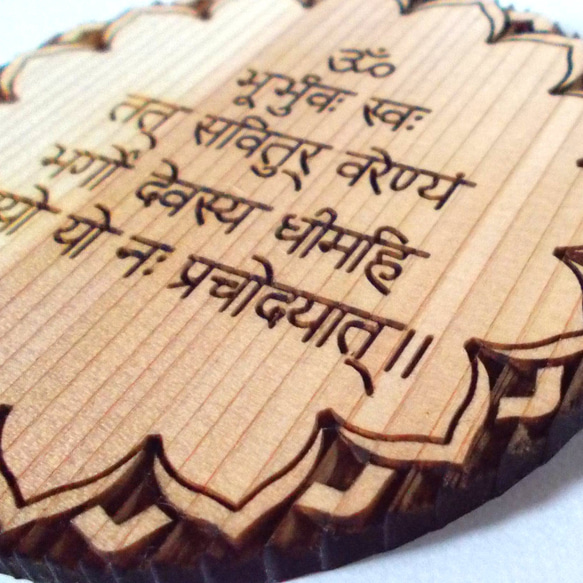 ॐ
भूर्भुवः स्वः
तत् सवितुर् वरेण्यं
भर्गो देवस्य धीमहि
यो नः प्रचोदयात्॥